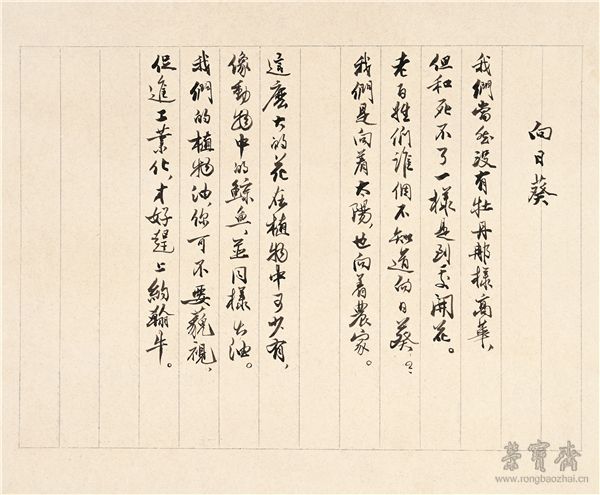 向日葵
我們當然沒有牡丹那樣高華，
但和死不了一樣是到處開花。
老百姓們誰個不知道向日葵？
我們是向着太陽，也向着農家。
這麼大的花在植物中可少有，
像動物中的鯨魚，並同樣出油。
我們的植物油，你可不要藐視，
促進工業化，才好趕上約翰牛。
榮寶齋
www.rongbaozhai.cn